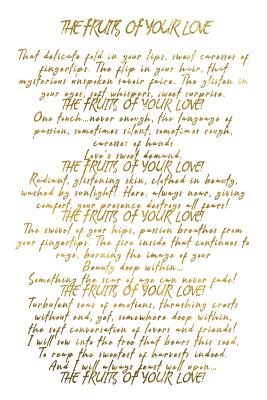 THE FRUITS OF YOUR LOVE
That delicate fold in your lips, sweet caresses of
fingertips. The flip in your hair, that
mysterious unspoken savoir faire. The glisten in
your eyes, soft whispers, sweet surprise.
THE FRUITS OF YOUR LOVE!
One touch...never enough, the language of
passion, sometimes silent, sometimes rough,
caresses of hands
Love's sweet demand.
THE FRUITS OF YOUR LOVE!
Radiant, glistening skin, clothed in beauty,
washed by sunlight! Here, always near, giving
comfort, your presence destroys all fears!
THE FRUITS OF YOUR LOVE!
The swivel of your hips, passion breathes from
your fingertips. The fire inside that continues to
rage, burning the image of your
Beauty deep within...
Something the scar of age can never fade!
THE FRUITS OF YOUR LOVE!
Turbulent seas of emotions, thrashing crests
without end, yet, somewhere deep within,
the soft conversation of lovers and friends!
I will sow into the tree that bears this seed,
To reap the sweetest of harvests indeed.
And I will always feast well upon...
THE FRUITS OF YOUR LOVE!